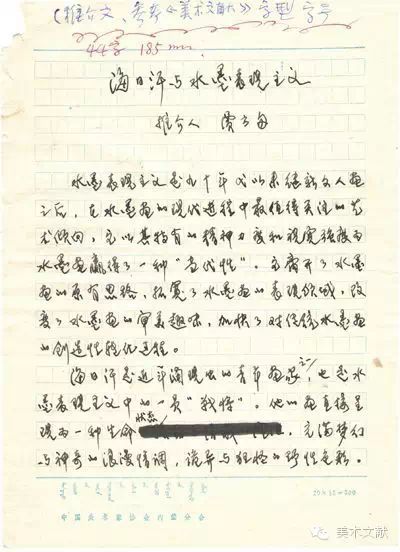 (推介文，参考《美术文献》字型字号
44字 185mm
海日汗与水墨表现主义
推介人 贾方舟
水墨表现主义是九十年代以来继新文人画
之后，在水墨画的现代进程中最值得关注的艺
术倾向，它以其特有的精神力度和视觉强度而
水墨画赢得了一种“当代性”。它离开了水墨
画的原有思路，拓宽了水墨画的表现领域，改
变了水墨画的审美趣味，加快了对传统水墨画
的创造性转化进程。
海日汗是近年涌现出的青年画家之一，也是水
墨表现主义中的一员“战将”。他的画直接呈
现为一种生命状态，充满梦幻
与神奇的浪漫情调，诡异与狂怪的野性色彩。
20×15=300
中国美术家协会内蒙分会
美术文献